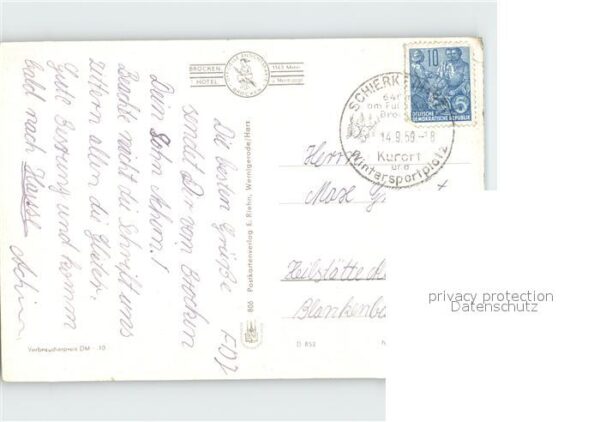 BROCKEN
HOTEL
1143 Meter
BROCKEN
Die besten Grüße
sendet Dir vom Brocken
Dein Sohn Achim!
Beachte nicht die Schrift uns
zittern allen die Glieder.
Gute Besserung und komm
bald nach Hause
Achim
FDJ
806 Postkartenverlag E. Riehn, Wernigerode/Harz
Verbraucherpreis DM -.10
10
DEUTSCHE
DEMOKRATISCHE REPUBLIK
SCHIERKE
am Fuß
14.9.59.-8
Kurort
und
Wintersportplatz
Herrn
Max
Heilstätte
Blankenb
D 852
privacy protection
Datenschutz